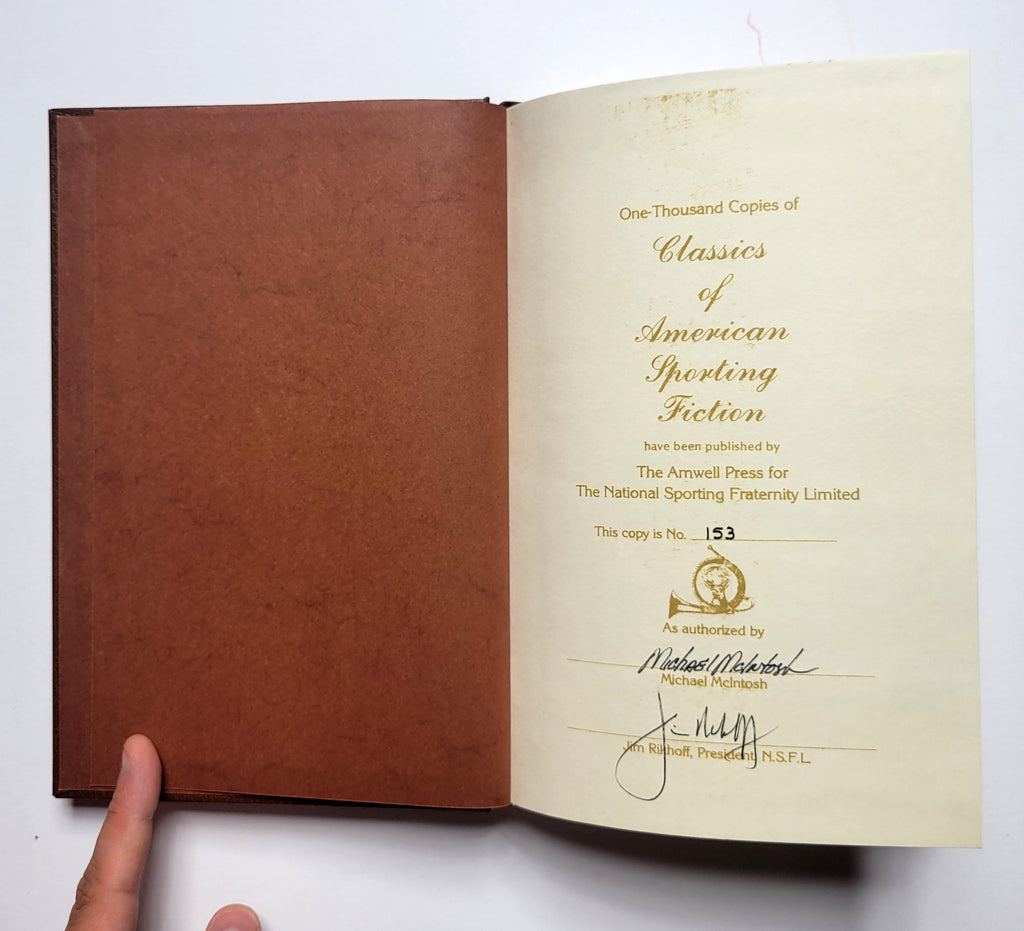 One-Thousand Copies of
Classics
of
American
Sporting
Fiction
have been published by
The Amwell Press for
The National Sporting Fraternity Limited
This copy is No. 153
As authorized by
Michael McIntosh
Michael McIntosh
Jim Rikhoff
Jim Rikhoff, President, N.S.F.L.